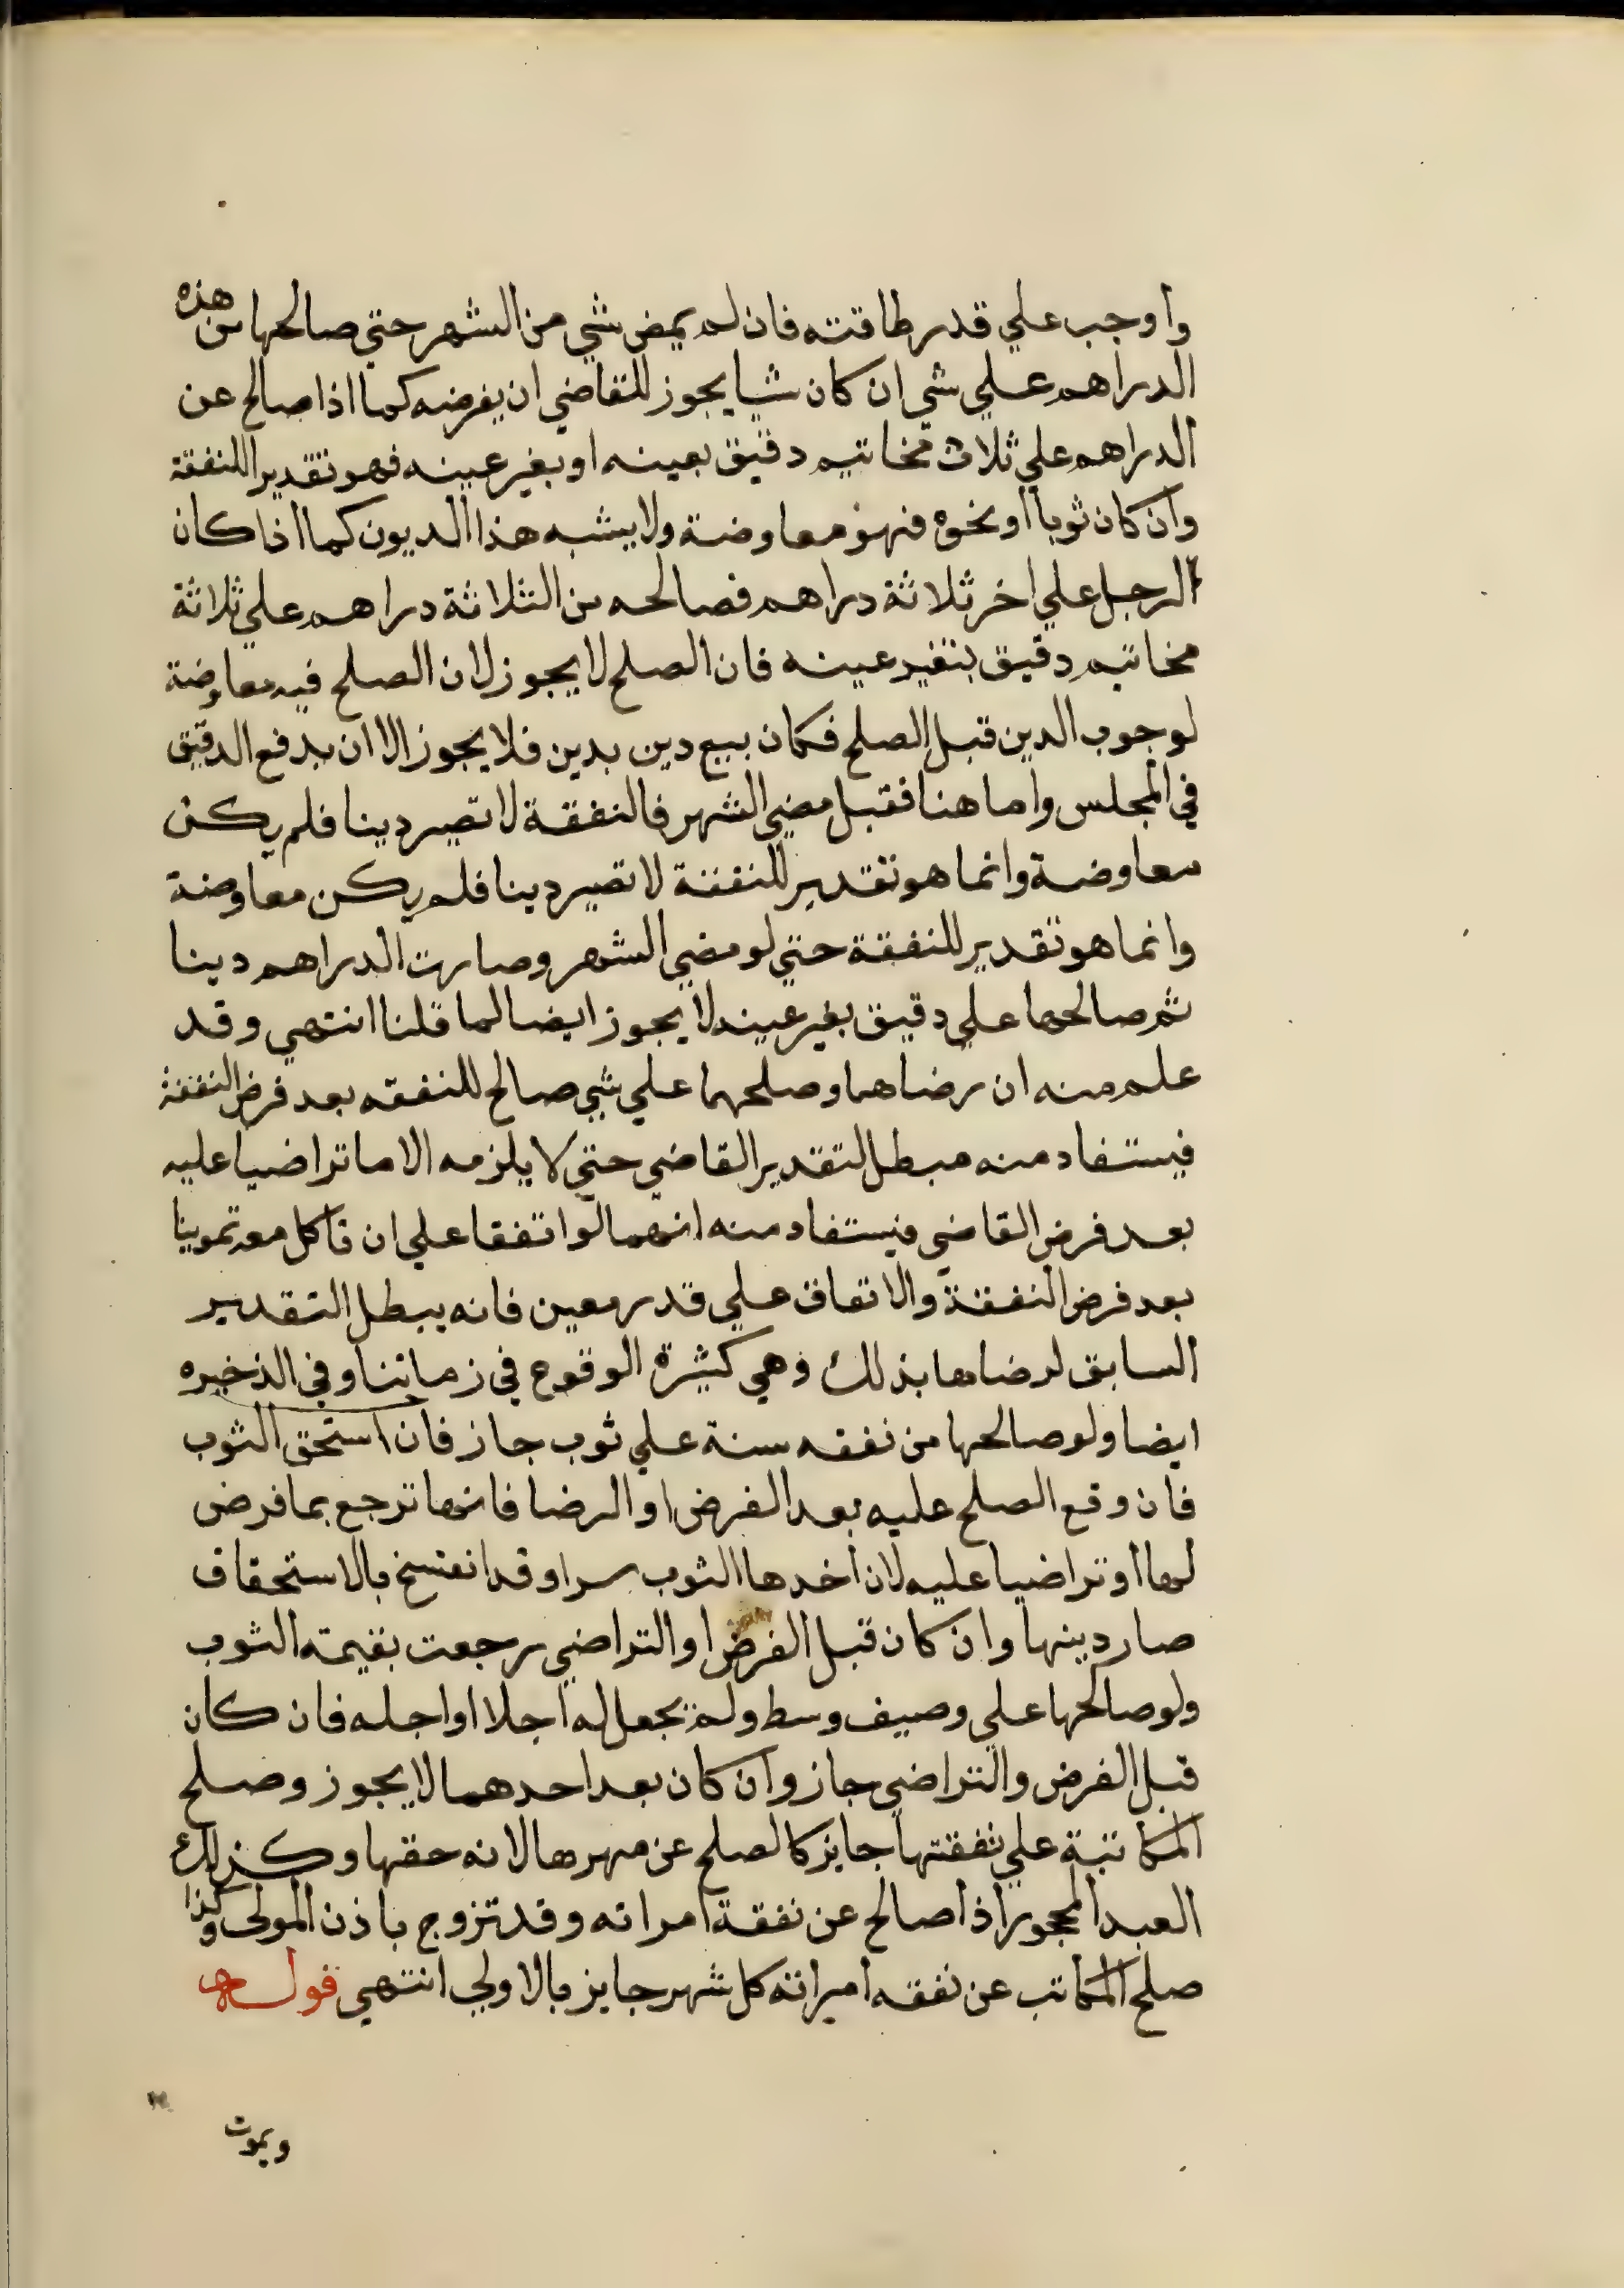 واوجب علي قدر طاقته فان لم يمض شي من الشهر حتي صالحها من هذه
الدراهم علي شي ان كان شيا يجوز للقاضي ان يفرضه كما اذا صالح عن
الدراهم علي ثلاث مخاتيم دقيق بعينه او بغير عينه فهو تقدير اللنفقة
وان كان ثوبا او نحوه فهو معاوضة ولا يشبه هذا الديون كما اذا كان
الرجل علي اخر ثلاثة دراهم فصالحه من الثلاثة دراهم علي ثلاثة
مخاتيم دقيق بغير عينه فان الصلح لا يجوز لان الصلح فيه معاوضة
لوجوب الدين قبل الصلح فكان بيع دين بدين فلا يجوز الا ان يدفع الدقيق
في المجلس واما هنا فقبل مضي الشهر فالنفقة لا تصير دينا فلم يكن
معاوضة وانما هو تقدير للنفقة لا تصير دينا فلم يكن معاوضة
وانما هو تقدير للنفقة حتي لو مضي الشهر وصارت الدراهم دينا
ثم صالحها علي دقيق بغير عينه لا يجوز ايضا لما قلنا انتهي وقد
علم منه ان رضاهما وصلحهما علي شي صالح للنفقه بعد فرض النفقة
فيستفاد منه مبطل لتقدير القاضي حتي لا يلزمه الا ما تراضيا عليه
بعد فرض القاضي فيستفاد منه انهما لو اتفقا علي ان تاكل معه تموينا
بعد فرض النفقة والاتفاق علي قدر معين فانه يبطل التقدير
السابق لرضاها بذلك وهي كثيرة الوقوع في زماننا وفي الذخيره
ايضا ولو صالحها من نفقه سنة علي ثوب جاز فان استحق الثوب
فان وقع الصلح عليه بعد الفرض او الرضا فانها ترجع بما فرض
لها او تراضيا عليه لان اخدها الثوب سرا وقد انفسخ بالاستحقاق
صار دينها وان كان قبل الفرض او التراضي رجعت بقيمته الثوب
ولو صالحها علي وصيف وسط ولم يجعل له اجلا او اجله فان كان
قبل الفرض والتراضي جاز وان كان بعد احدهما لا يجوز وصلح
المكاتبة علي نفقتها جايز كالصلح عن مهرها لانه حقها وكذلك
العبد المحجور اذا صالح عن نفقة امراته وقد تزوج باذن المولي وكذا
صلح المكاتب عن نفقه اميراته كل شهر جايز بالاولي انتهي قوله
ويموت